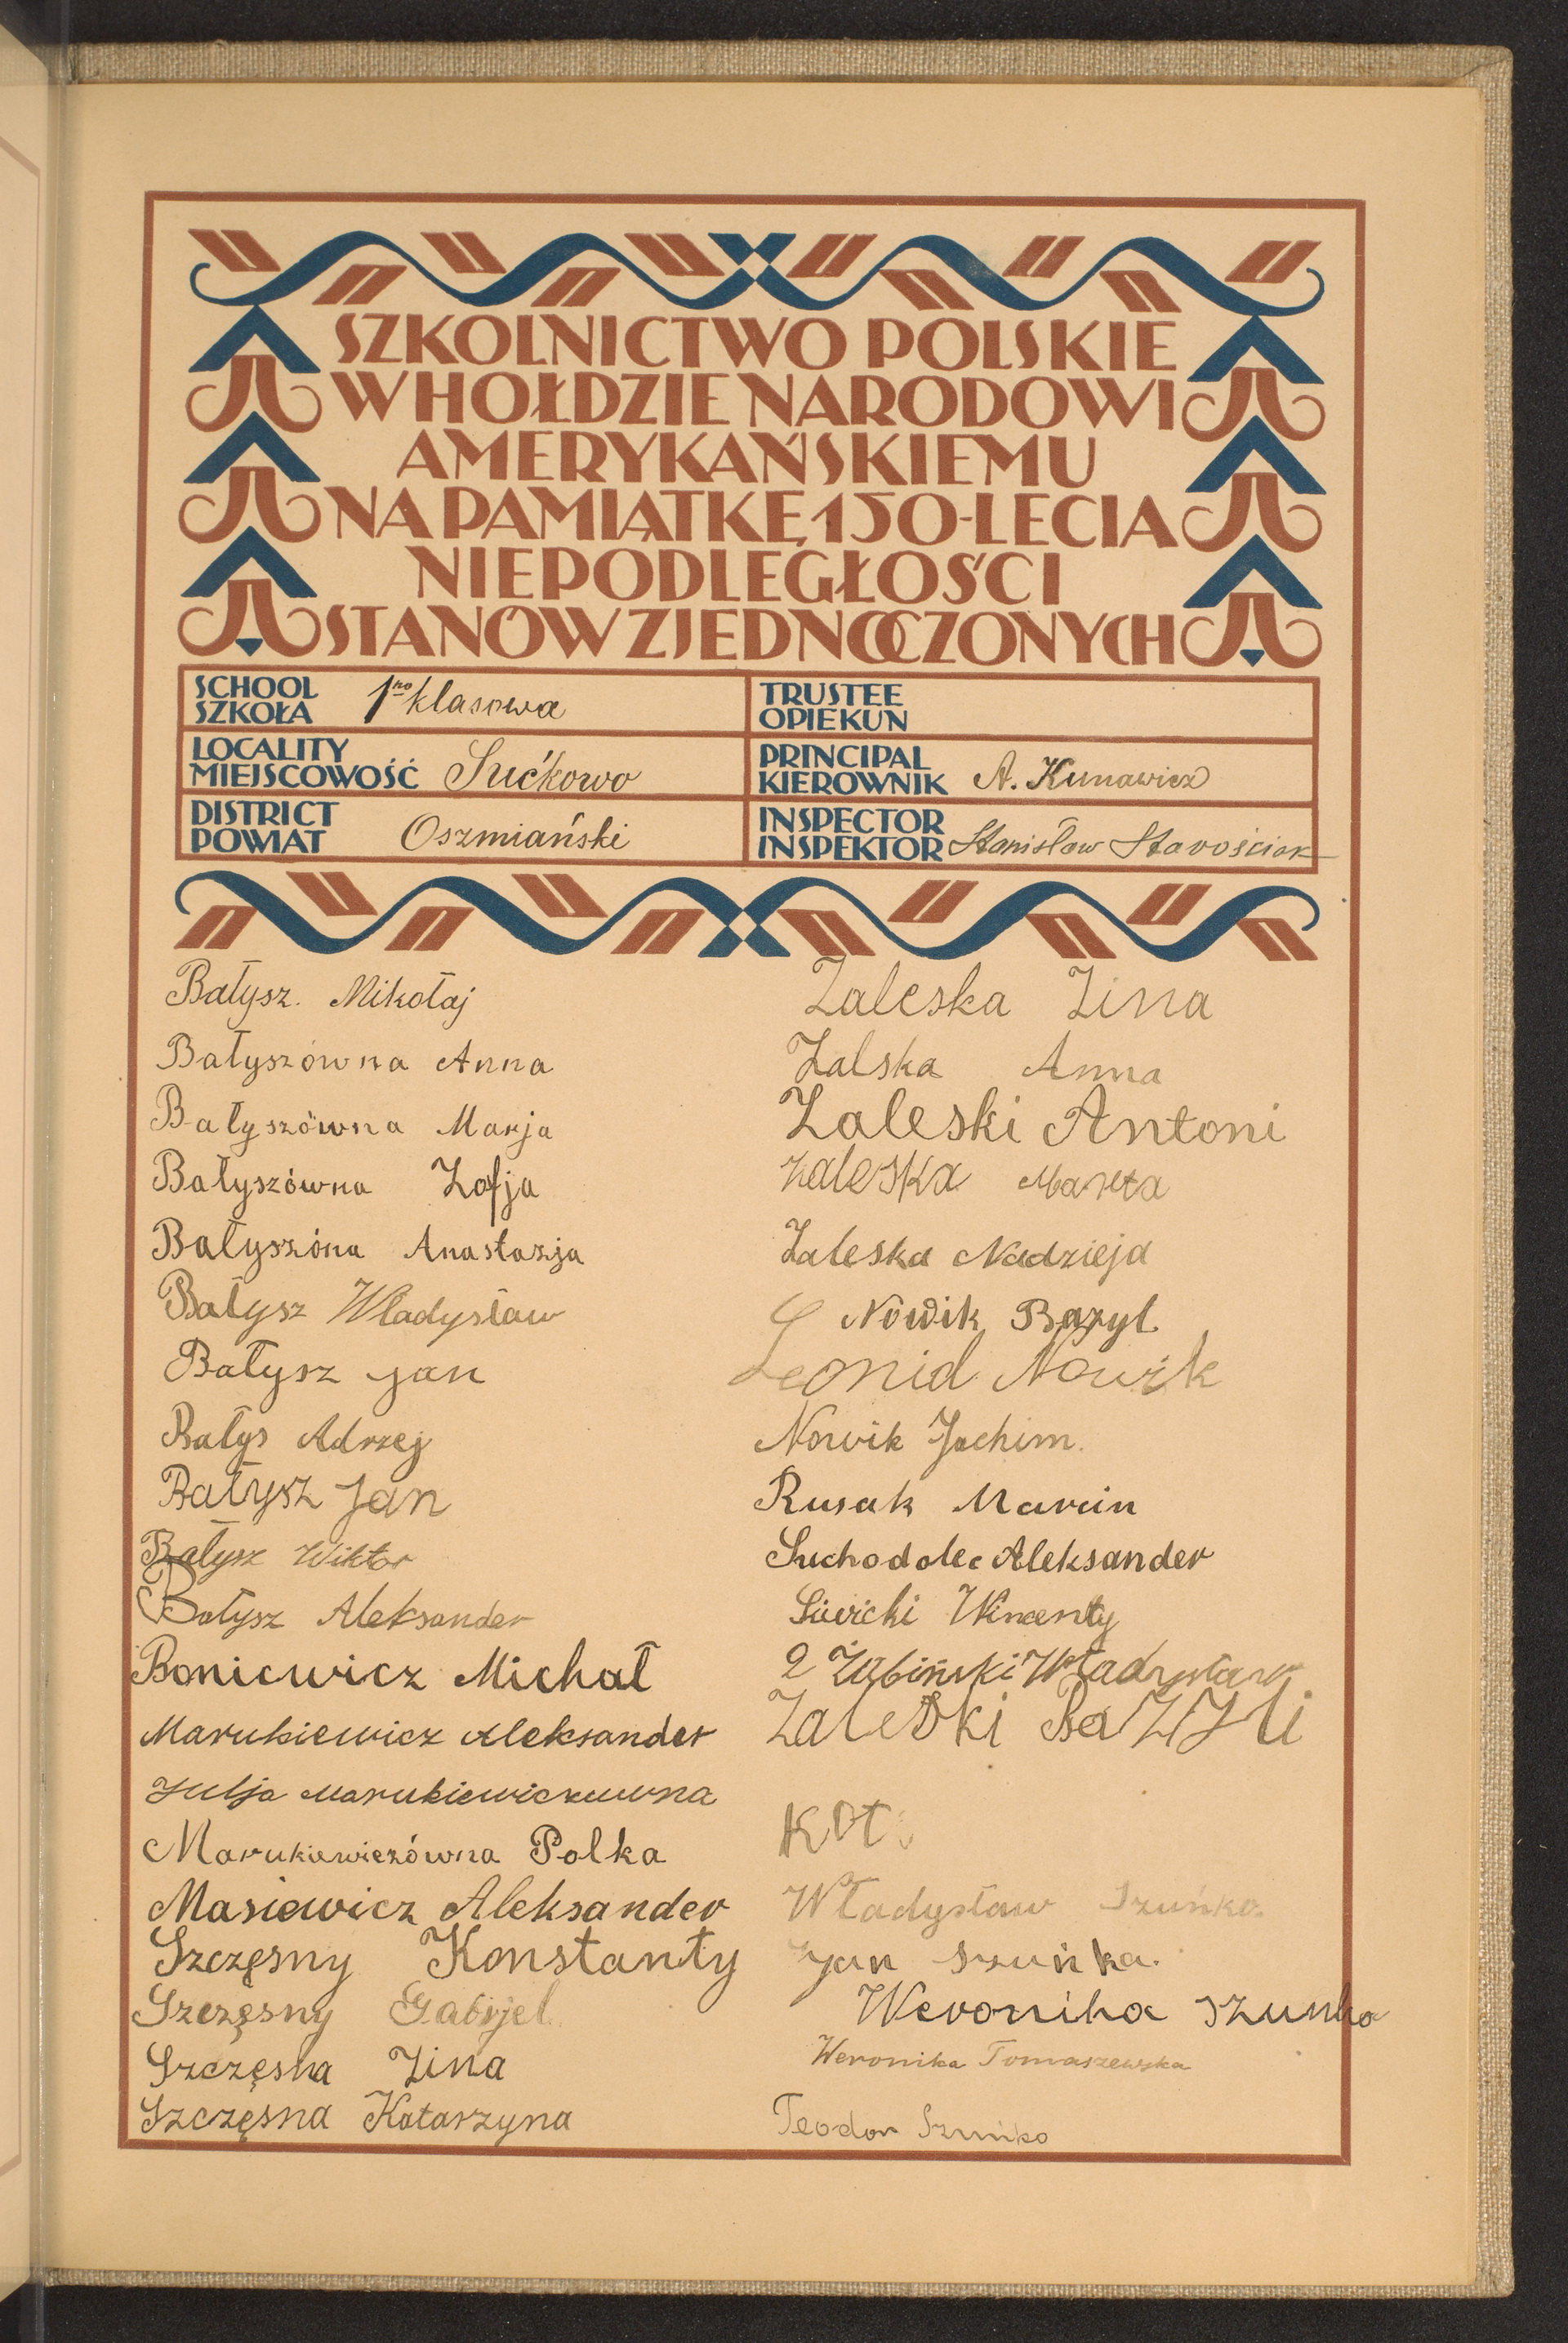 SZKOLNICTWO POLSKIE
W HOŁDZIE NARODOWI
AMERYKAŃSKIEMU
NA PAMIĄTKĘ 150-LECIA
NIEPODLEGŁOŚCI
STANÓW ZJEDNOCZONYCH
SCHOOL
SZKOŁA 1no klasowa
LOCALITY
MIEJSCOWOŚĆ Sućkowo
DISTRICT
POWIAT Oszmiański
TRUSTEE
OPIEKUN
PRINCIPAL
KIEROWNIK A. Kunawicz
INSPECTOR
INSPEKTOR Stanisław Starościak
Bałysz. Mikołaj
Bałyszówna Anna
Bałyszówna Marja
Bałyszówna Zofja
Bałyszóna Anastazja
Bałysz Władysław
Bałysz Jan
Bałys Adrzej
Bałysz Jan
Bałysz Wiktor
Bałysz Aleksander
Boniewicz Michał
Marukiewicz Aleksander
Julja Marukiewiczuwna
Marukiewiczówna Polka
Masiewicz Aleksander
Szczęsny Konstanty
Szczęsny Gabrjel
Szczęsna Zina
Szczęsna Katarzyna
Zaleska Zina
Zalska Anna
Zaleski Antoni
Zaleska Marta
Zaleska Nadzieja
Nowik Bazyl
Leonid Nowik
Nowik Jachim.
Rusak Marcin
Suchodolec Aleksander
Siwicki Wincenty
Żabiński Władysław
Zaleski Bazyli
Kot
Władysław Szuńko
Jan Szuńka.
Weronika Szunko
Weronika Tomaszewska
Teodor Szuńko